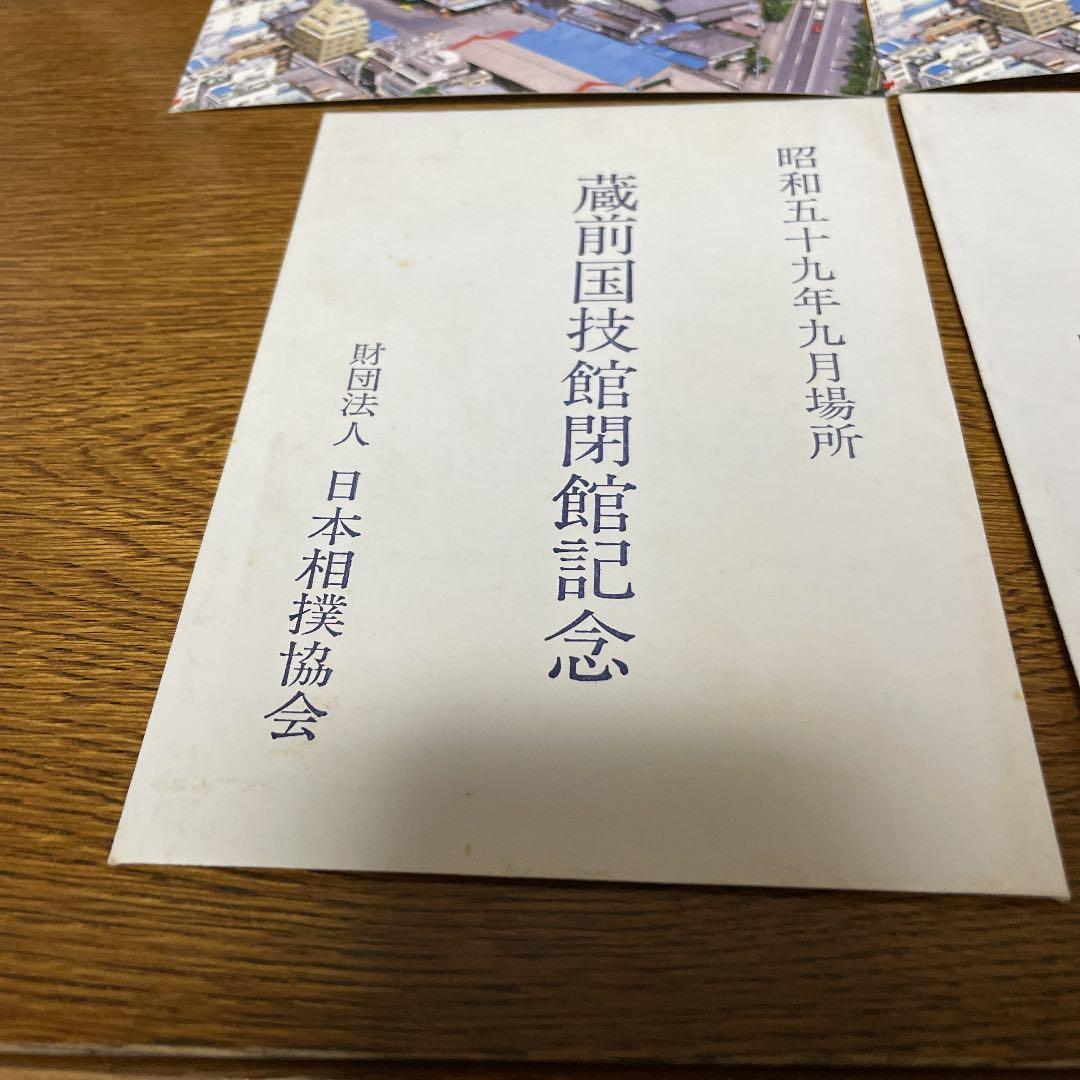 昭和五十九年九月場所
蔵前国技館閉館記念
財団法人 日本相撲協会